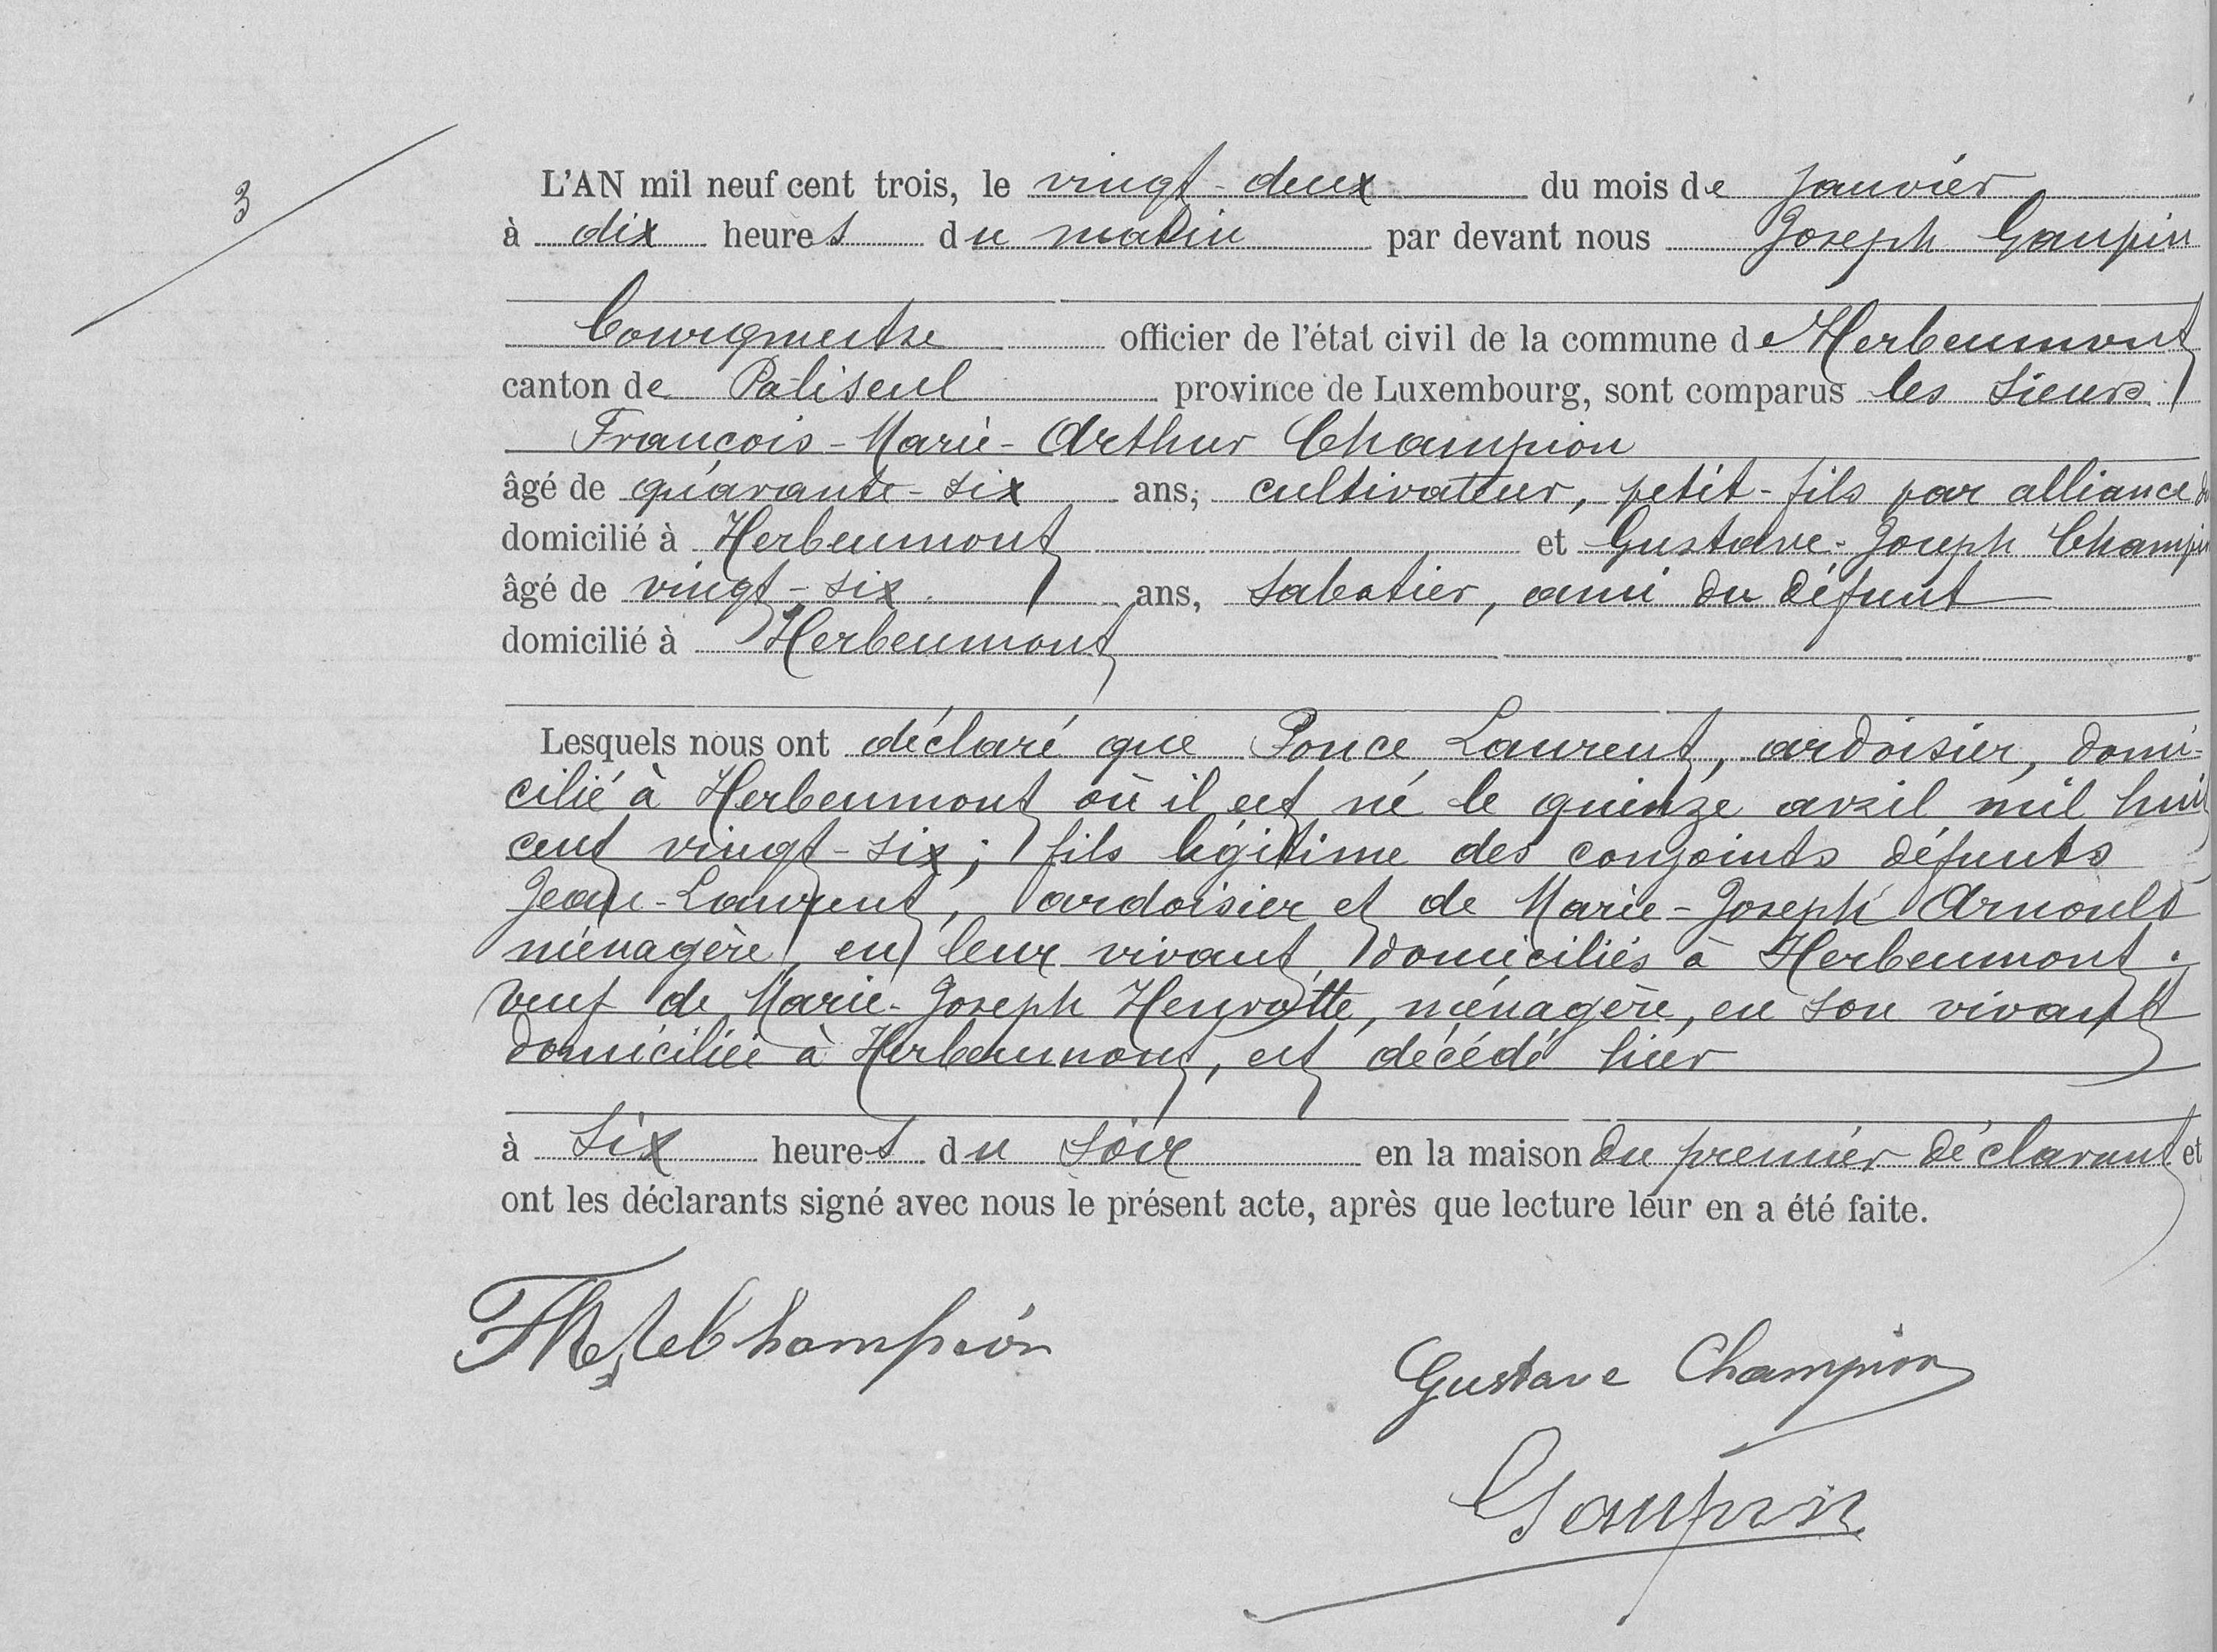 3
L'AN mil neuf cent trois, le vingt-deux du mois de Janvier
à dix heures du matin par devant nous Joseph Gaupin
Bourgmestre officier de l'état civil de la commune de Herbeumont
canton de Paliseul province de Luxembourg, sont comparus les sieurs
François-Marie-Arthur Champion
âgé de quarante-six ans, cultivateur, petit-fils par alliance du
domicilié à Herbeumont et Gustave-Joseph Champion
âgé de vingt-six ans, sabotier, ami du défunt
domicilié à Herbeumont
Lesquels nous ont déclaré que Ponce Laurent, ardoisier, domi-
cilié à Herbeumont où il est né le quinze avril mil huit
cent vingt-six; fils légitime des conjoints défunts
Jean-Laurent, ardoisier et de Marie-Joseph Arnould
ménagère, en leur vivant domiciliés à Herbeumont.
veuf de Marie-Joseph Henrotte, ménagère, en son vivant
domiciliée à Herbeumont, est décédé hier
à six heures du soir en la maison du premier déclarant et
ont les déclarants signé avec nous le présent acte, après que lecture leur en a été faite.
Champion
Gustave Champion
Gaupin